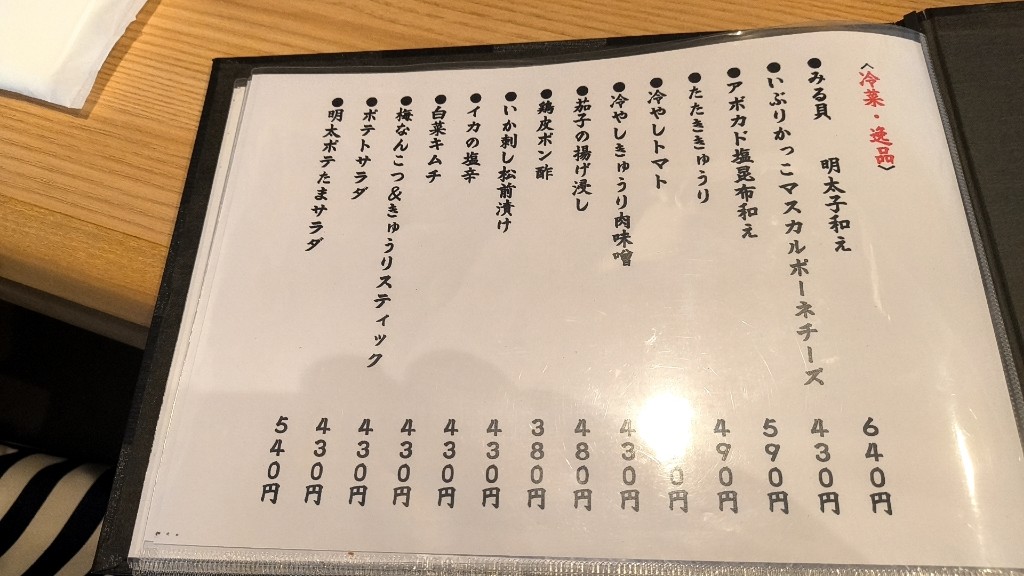 〈冷菜・逸品〉
●みる貝　明太子和え　640円
●いぶりかっこマスカルポーネチーズ　430円
●アボカド塩昆布和え　590円
●たたききゅうり　490円
●冷やしトマト
●冷やしきゅうり肉味噌　430円
●茄子の揚げ浸し　480円
●鶏皮ポン酢　380円
●いか刺し松前漬け　430円
●イカの塩辛　430円
●白菜キムチ　430円
●梅なんこつ&きゅうりスティック　430円
●ポテトサラダ　430円
●明太ポテたまサラダ　540円